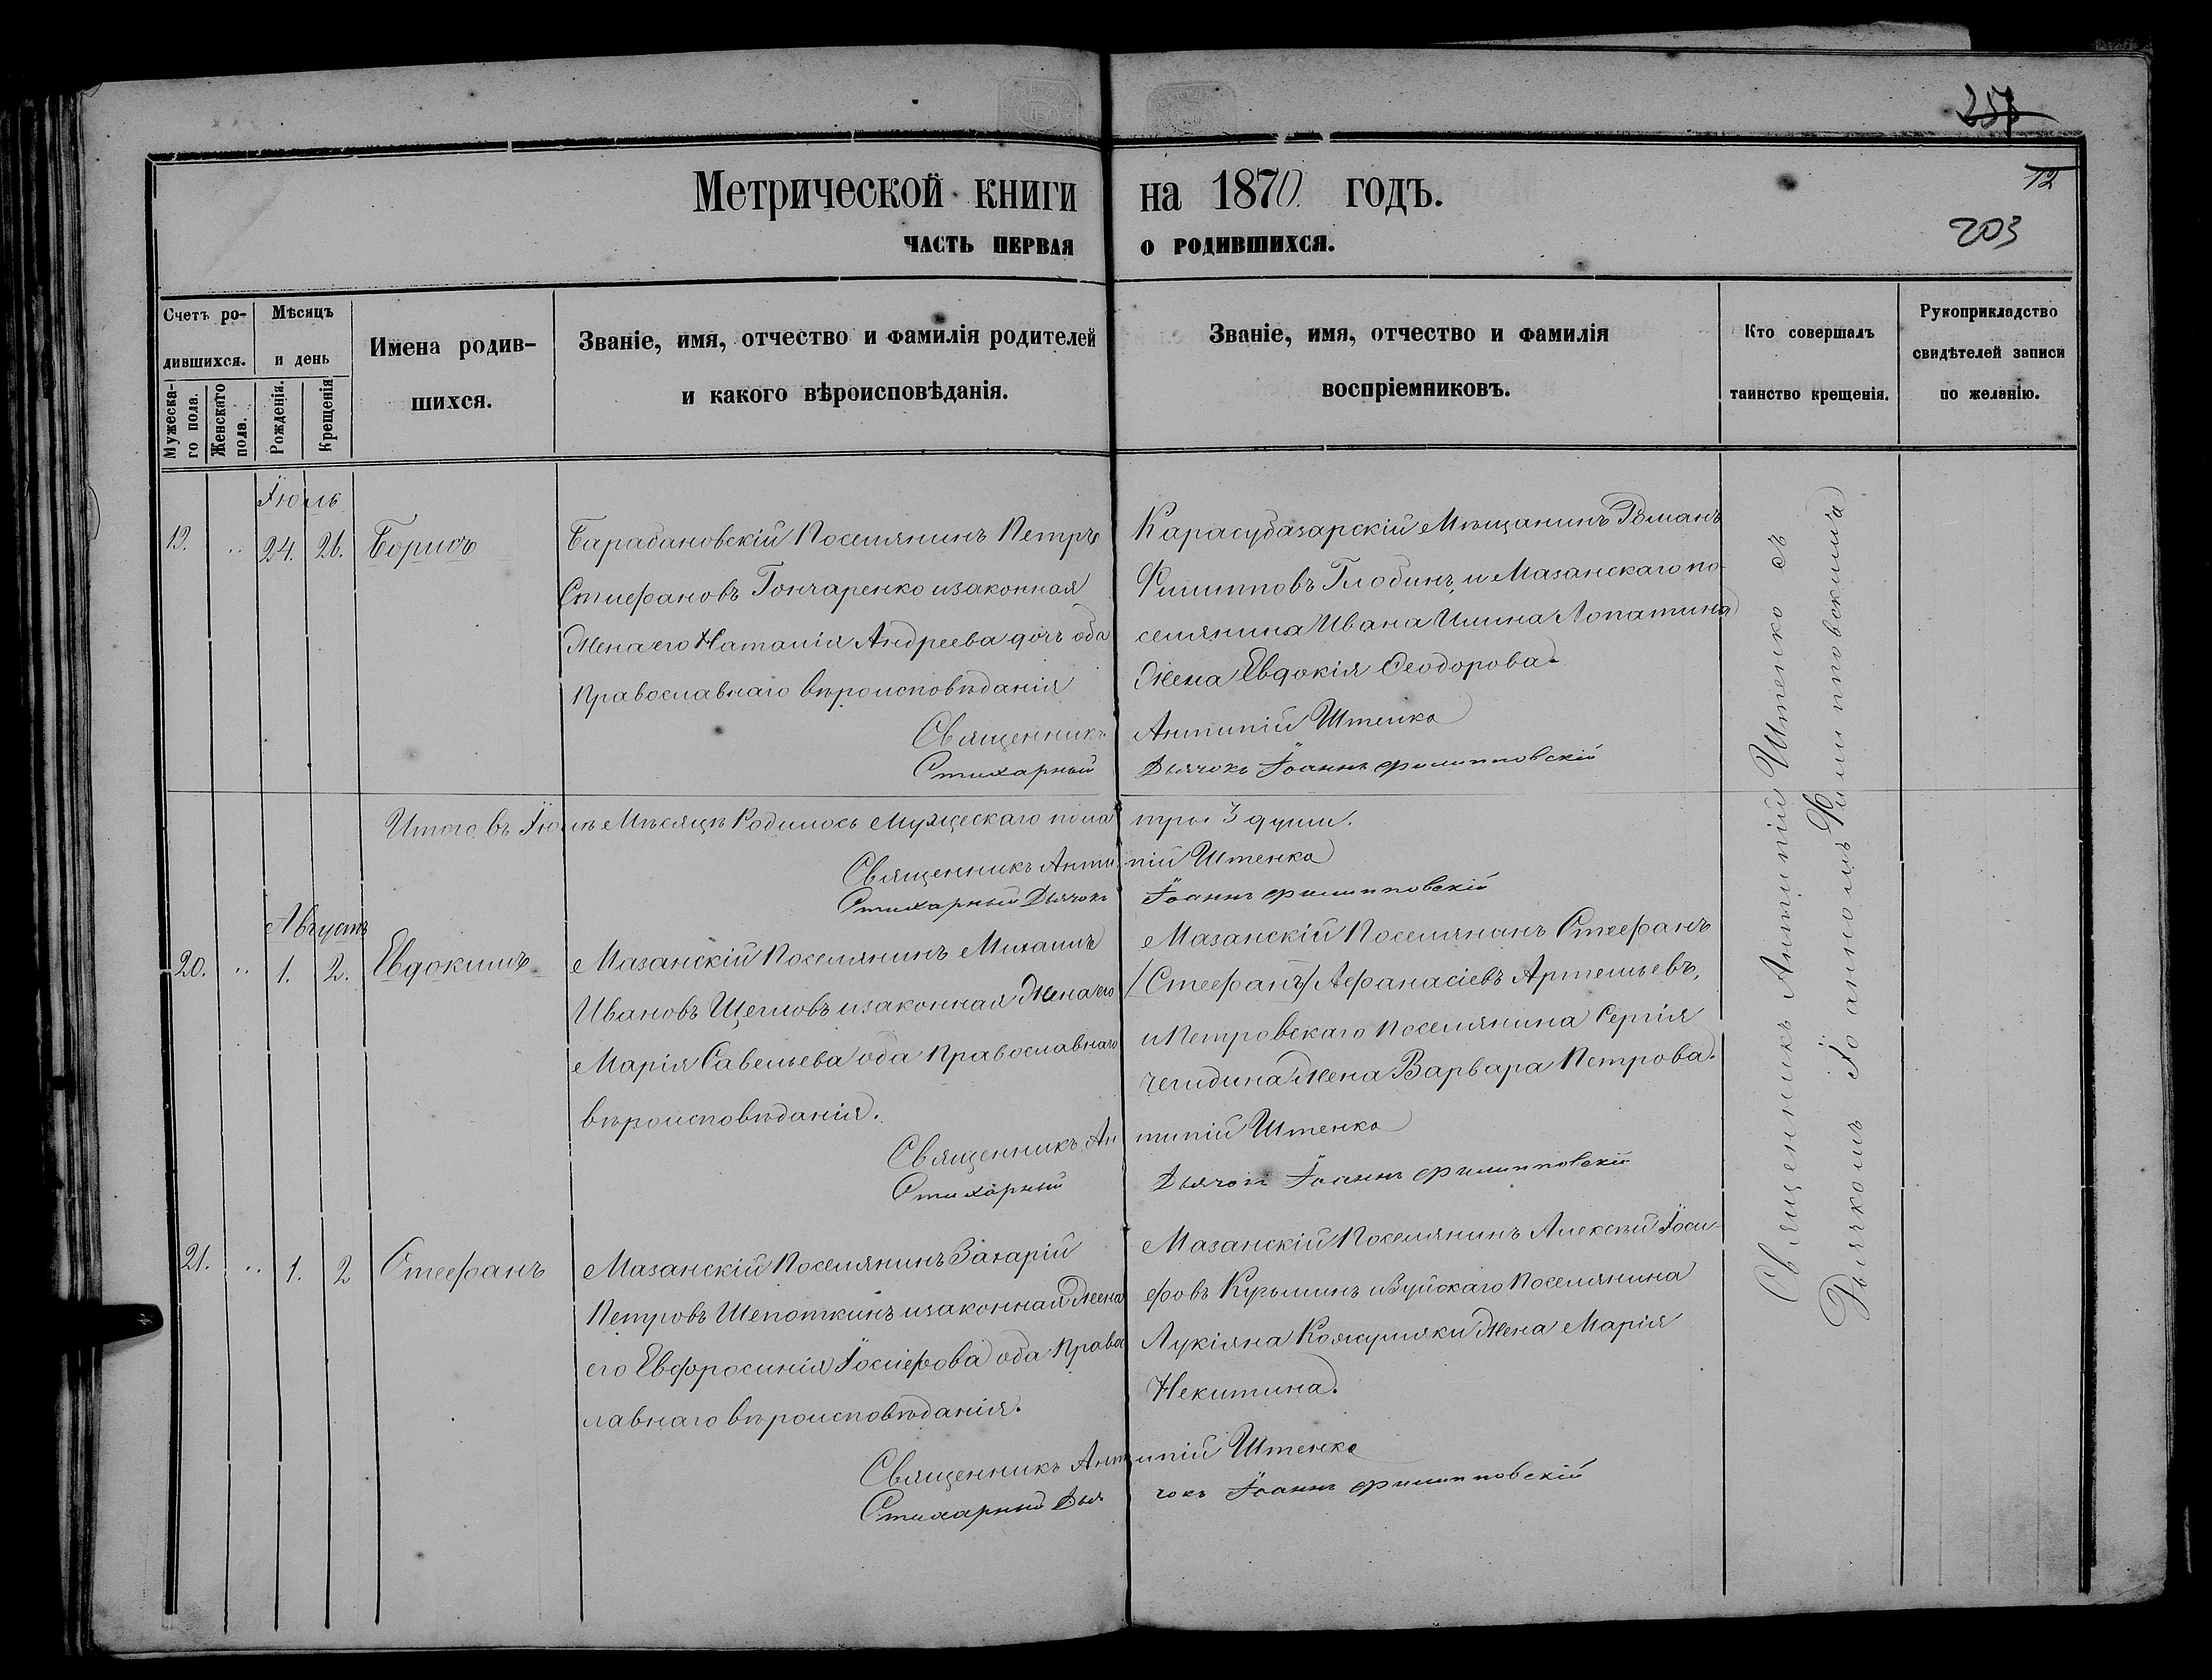 257
12
203
Метрической книги на 1870 годъ.
ЧАСТЬ ПЕРВАЯ О РОДИВШИХСЯ.
Счетъ ро-
дившихся.
Мужеска-
го пола.
Женскаго
пола.
Мѣсяцъ
и день
Рожденія.
Крещенія
Имена родив-
шихся.
Званіе, имя, отчество и фамилія родителей
и какого вѣроисповѣданія.
Званіе, имя, отчество и фамилія
воспріемниковъ.
Кто совершалъ
таинство крещенія.
Рукоприкладство
свидѣтелей записи
по желанію.
Іюль
19. " 24. 26. Борисъ
Барабановскій Поселянинъ Петръ
Стефановъ Гончаренко и законная
Жена его Наталія Андреева дочь оба
Православнаго вѣроисповѣданія
Карасубазарскій Мѣщанинъ Романъ
Филипповъ Глобинъ, и Мазанскаго по-
селянина Ивана Лопатина
Жена Евдокія Феодорова.
Священникъ Антипій Штенко
Стихарный Дьячокъ Іоаннъ Филипповскій
Итого въ Іюлѣ Мѣсяцѣ Родилось Мужескаго пола три 3 души.
Священникъ Антипій Штенко
Стихарный Дьячокъ Іоаннъ Филипповскій
Августъ
20. " 1. 2. Евдокимъ
Мазанскій Поселянинъ Михаилъ
Ивановъ Щегловъ и законная Жена его
Марія Савельева оба Православнаго
вѣроисповѣданія.
Мазанскій Поселянинъ Стефанъ
/Стефанъ/ Афанасіевъ Артемьевъ,
и Петровскаго Поселянина Сергія
Челидина Жена Варвара Петрова.
Священникъ Антипій Штенко
Стихарный Дьячокъ Іоаннъ Филипповскій
21. " 1. 2 Стефанъ
Мазанскій Поселянинъ Захарій
Петровъ Шепоткинъ и законная Жена
его Евфросинія Іосифова оба Правос
лавнаго вѣроисповѣданія.
Мазанскій Поселянинъ Алексѣй Іоси-
фовъ Курылинъ и Зуйскаго Поселянина
Лукіяна Кожушяки Жена Марія
Некитина.
Священникъ Антипій Штенко
Стихарный Дьячокъ Іоаннъ Филипповскій
Священникъ Антипій Штенко съ
Дьячкомъ Іоанномъ Филипповскимъ